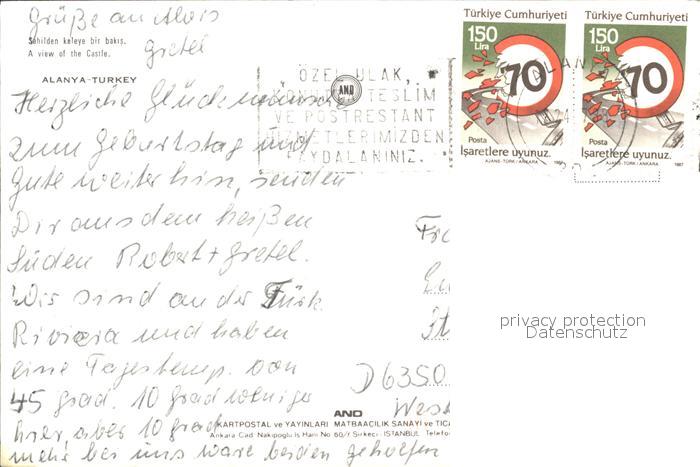 Grüße an Alois
Gretel
Sahilden kaleye bir bakış.
A view of the Castle.
ALANYA-TURKEY
Herzliche Glückwünsche
zum Geburtstag und
Gute weiterhin, senden
Dir aus dem heißen
Süden Robert + Gretel.
Wir sind an der Türk.
Riviera und haben
eine Tagestemp. von
45 grad. 10 Grad weniger
hier, aber 10 grad
mehr bei uns wäre beiden geholfen
ÖZEL ULAK,
TESLİM
VE POSTRESTANT
HİZMETLERİMİZDEN
FAYDALANINIZ.
AND
Türkiye Cumhuriyeti
150
Lira
70
Posta
İşaretlere uyunuz.
AJANS-TÜRK/ANKARA 1987
Türkiye Cumhuriyeti
150
Lira
70
Posta
İşaretlere uyunuz.
AJANS-TÜRK/ANKARA 1987
D 6350
AND
KARTPOSTAL ve YAYINLARI MATBAACILIK SANAYİ ve TİC
Ankara Cad. Nakipoğlu İş Hanı No 60/7 Sirkeci - İSTANBUL Telefo
privacy protection
Datenschutz